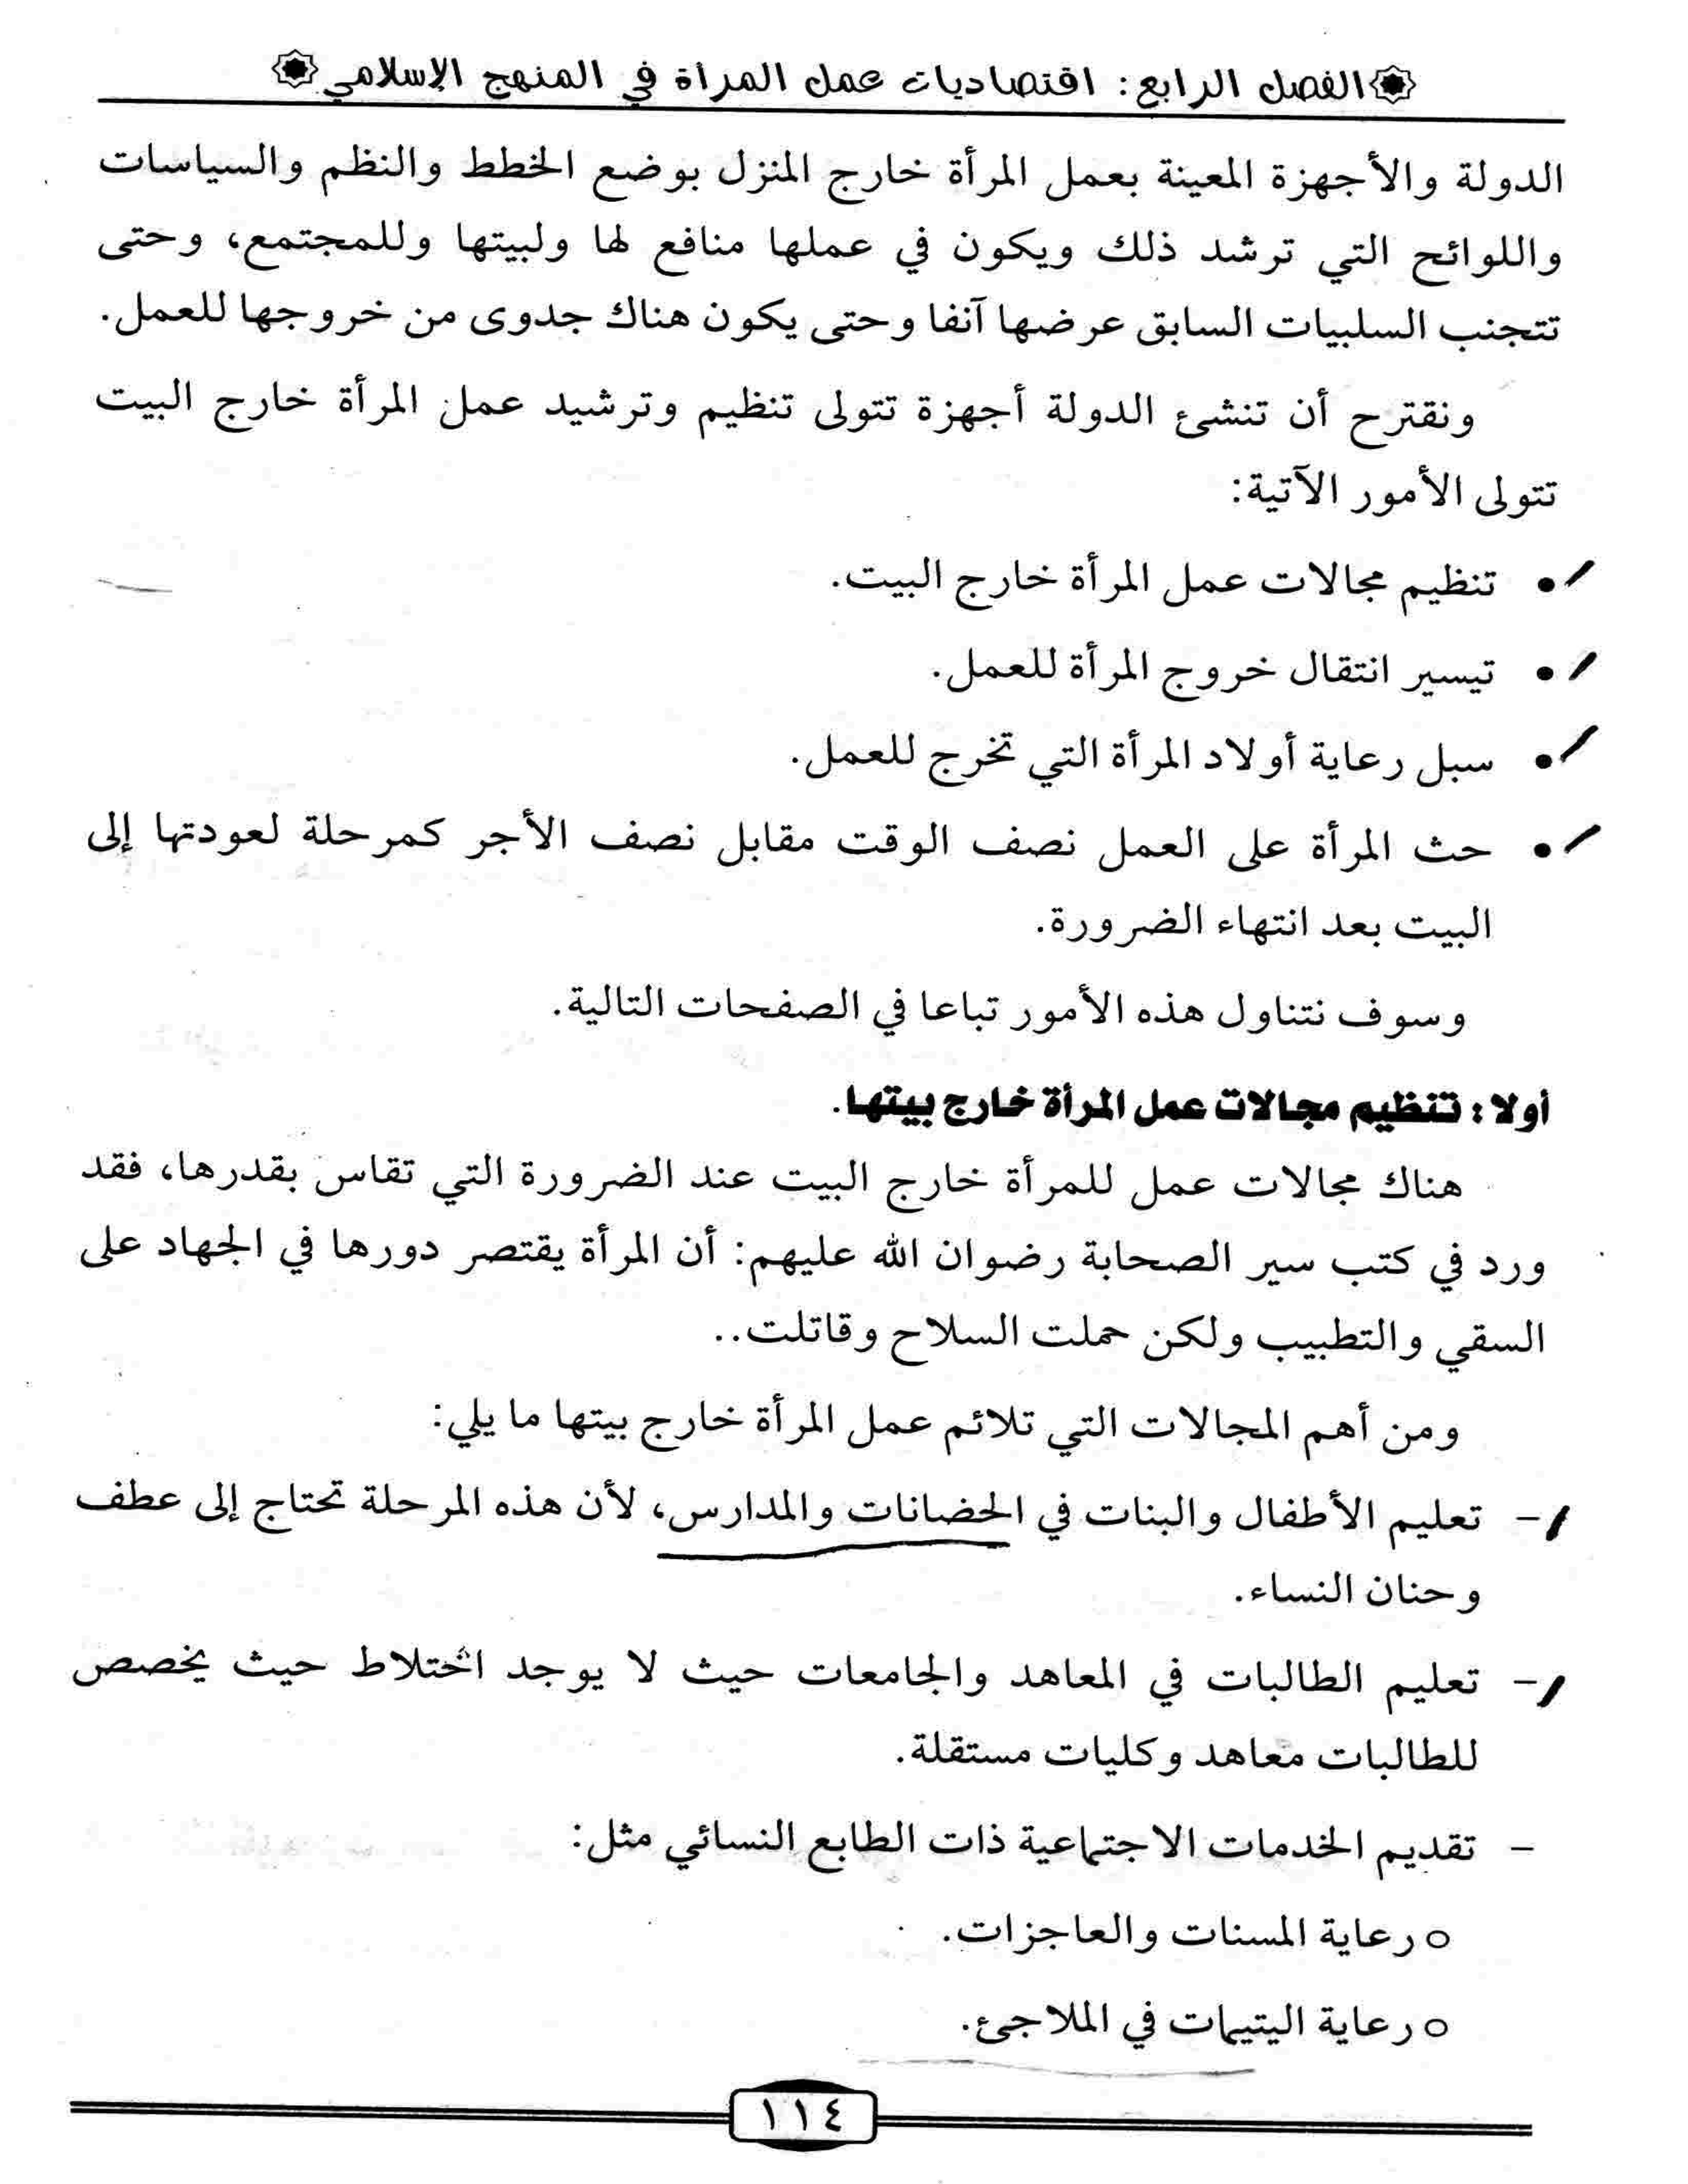 الفصل الرابع: اقتصاديات عمل المرأة في المنهج الإسلامي
الدولة والأجهزة المعينة بعمل المرأة خارج المنزل بوضع الخطط والنظم والسياسات
واللوائح التي ترشد ذلك ويكون في عملها منافع لها ولبيتها وللمجتمع، وحتى
تتجنب السلبيات السابق عرضها آنفا وحتى يكون هناك جدوى من خروجها للعمل.
ونقترح أن تنشئ الدولة أجهزة تتولى تنظيم وترشيد عمل المرأة خارج البيت
تتولى الأمور الآتية:
• تنظيم مجالات عمل المرأة خارج البيت.
• تيسير انتقال خروج المرأة للعمل.
• سبل رعاية أولاد المرأة التي تخرج للعمل.
• حث المرأة على العمل نصف الوقت مقابل نصف الأجر كمرحلة لعودتها إلى
البيت بعد انتهاء الضرورة.
وسوف نتناول هذه الأمور تباعا في الصفحات التالية.
أولا: تنظيم مجالات عمل المرأة خارج بيتها.
هناك مجالات عمل للمرأة خارج البيت عند الضرورة التي تقاس بقدرها، فقد
ورد في كتب سير الصحابة رضوان الله عليهم: أن المرأة يقتصر دورها في الجهاد على
السقي والتطبيب ولكن حملت السلاح وقاتلت..
ومن أهم المجالات التي تلائم عمل المرأة خارج بيتها ما يلي:
- تعليم الأطفال والبنات في الحضانات والمدارس، لأن هذه المرحلة تحتاج إلى عطف
وحنان النساء.
- تعليم الطالبات في المعاهد والجامعات حيث لا يوجد اختلاط حيث يخصص
للطالبات معاهد وكليات مستقلة.
- تقديم الخدمات الاجتماعية ذات الطابع النسائي مثل:
o رعاية المسنات والعاجزات.
o رعاية اليتيمات في الملاجئ.
١١٤